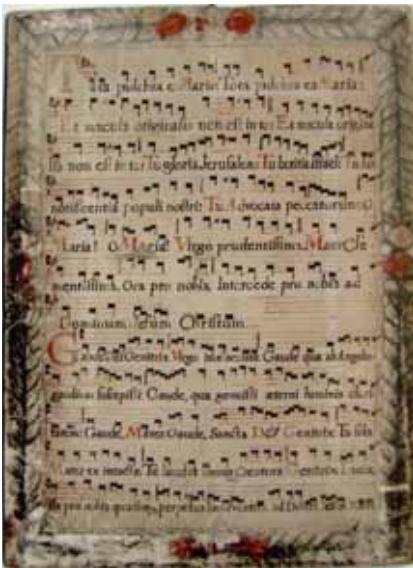 Tota pulchra es Maria: Tota pulchra es Maria:
Et macula originalis non est in te: Et macula origina
lis non est in te: Tu gloria Jerusalem: Tu laetitia Israel: Tu ho
norificentia populi nostri: Tu Advocata peccatorum: O
Maria! O Maria! Virgo prudentissima. Mater Cle
mentissima. Ora pro nobis. Intercede pro nobis ad
Dominum Jesum Christum.
Gaude Dei Genitrix Virgo Gaude quae ab Angelo
gaudium suscepisti: Gaude, quae genuisti aeterni luminis clari
tatem: Gaude, Mater: Gaude, Sancta Dei Genitrix: Tu sola
Mater Te laudat omnis
pro nobis